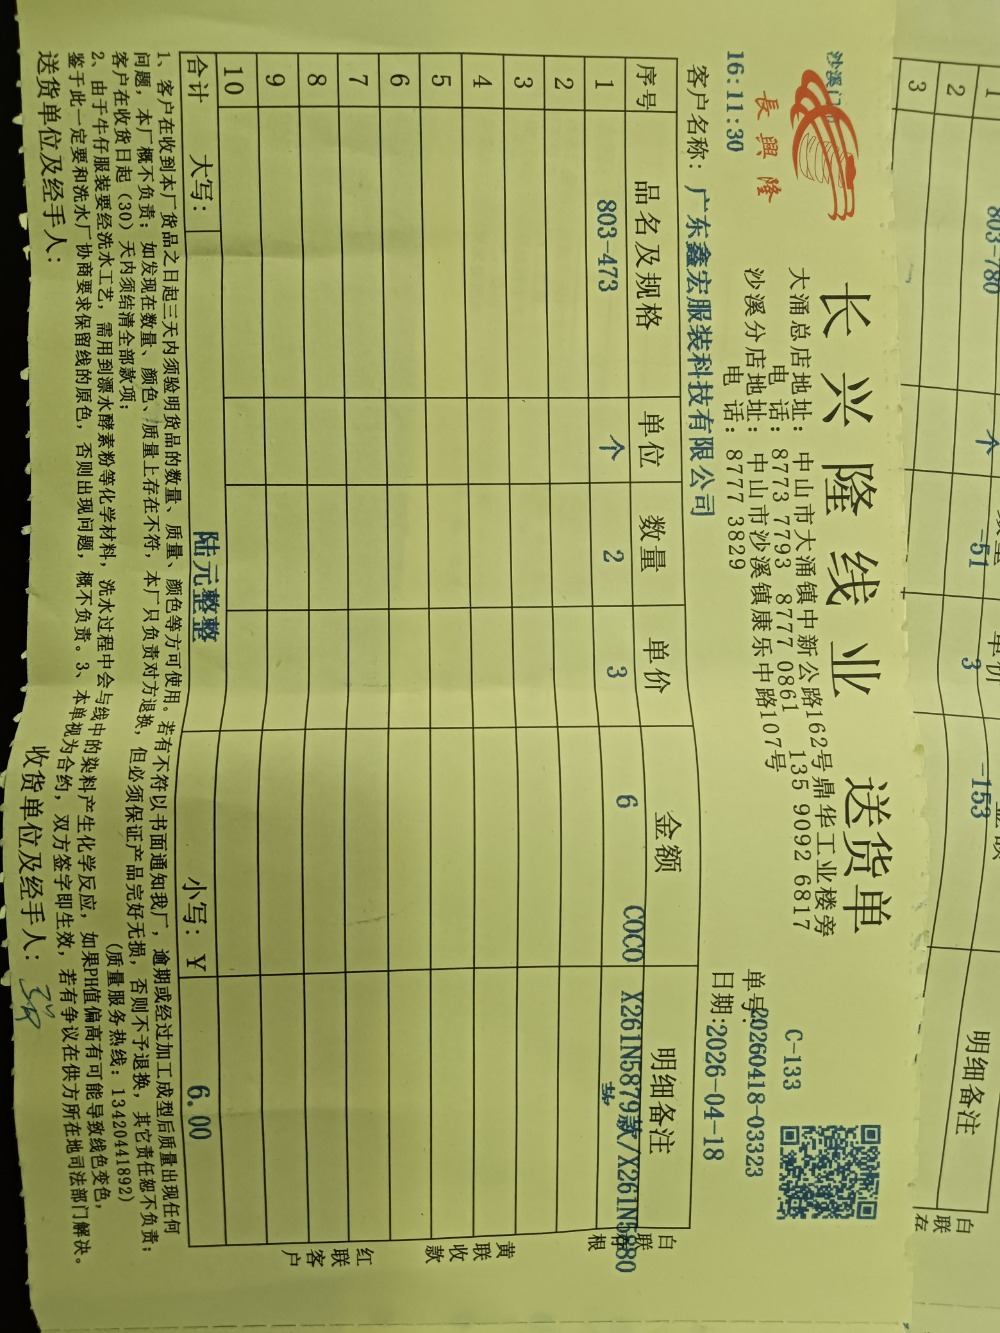 1 803-780 个 -51 3 -153
2
3
数量 单价 金额 明细备注
白联存
長興隆
沙溪门
16:11:30
长兴隆线业 送货单
大涌总店地址: 中山市大涌镇中新公路162号鼎华工业楼旁
电 话: 8773 7793 8777 0861 135 9092 6817
沙溪分店地址: 中山市沙溪镇康乐中路107号
电 话: 8777 3829
C-133
单号:20260418-03323
日期:2026-04-18
客户名称: 广东鑫宏服装科技有限公司
序号 品名及规格 单位 数量 单价 金额 明细备注
1 803-473 个 2 3 6 COCO X261N5879款/X261N5880款
2
3
4
5
6
7
8
9
10
合计 大写: 陆元整整 小写: Y 6.00
白联存根
黄联收款
红联客户
1、客户在收到本厂货品之日起三天内须验明货品的数量、质量、颜色等方可使用。若有不符以书面通知我厂,逾期或经过加工成型后质量出现任何
问题,本厂概不负责;如发现在数量、颜色、质量上存在不符,本厂只负责对方退换,但必须保证产品完好无损,否则不予退换,其它责任恕不负责;
客户在收货日起(30)天内须结清全部款项; (质量服务热线:13420441892)
2、由于牛仔服装要经洗水工艺,需用到漂水酵素粉等化学材料,洗水过程中会与线中的染料产生化学反应,如果PH值偏高有可能导致线色变色,
鉴于此一定要和洗水厂协商要求保留线的原色,否则出现问题,概不负责。3、本单视为合约,双方签字即生效,若有争议在供方所在地司法部门解决。
送货单位及经手人: 收货单位及经手人: